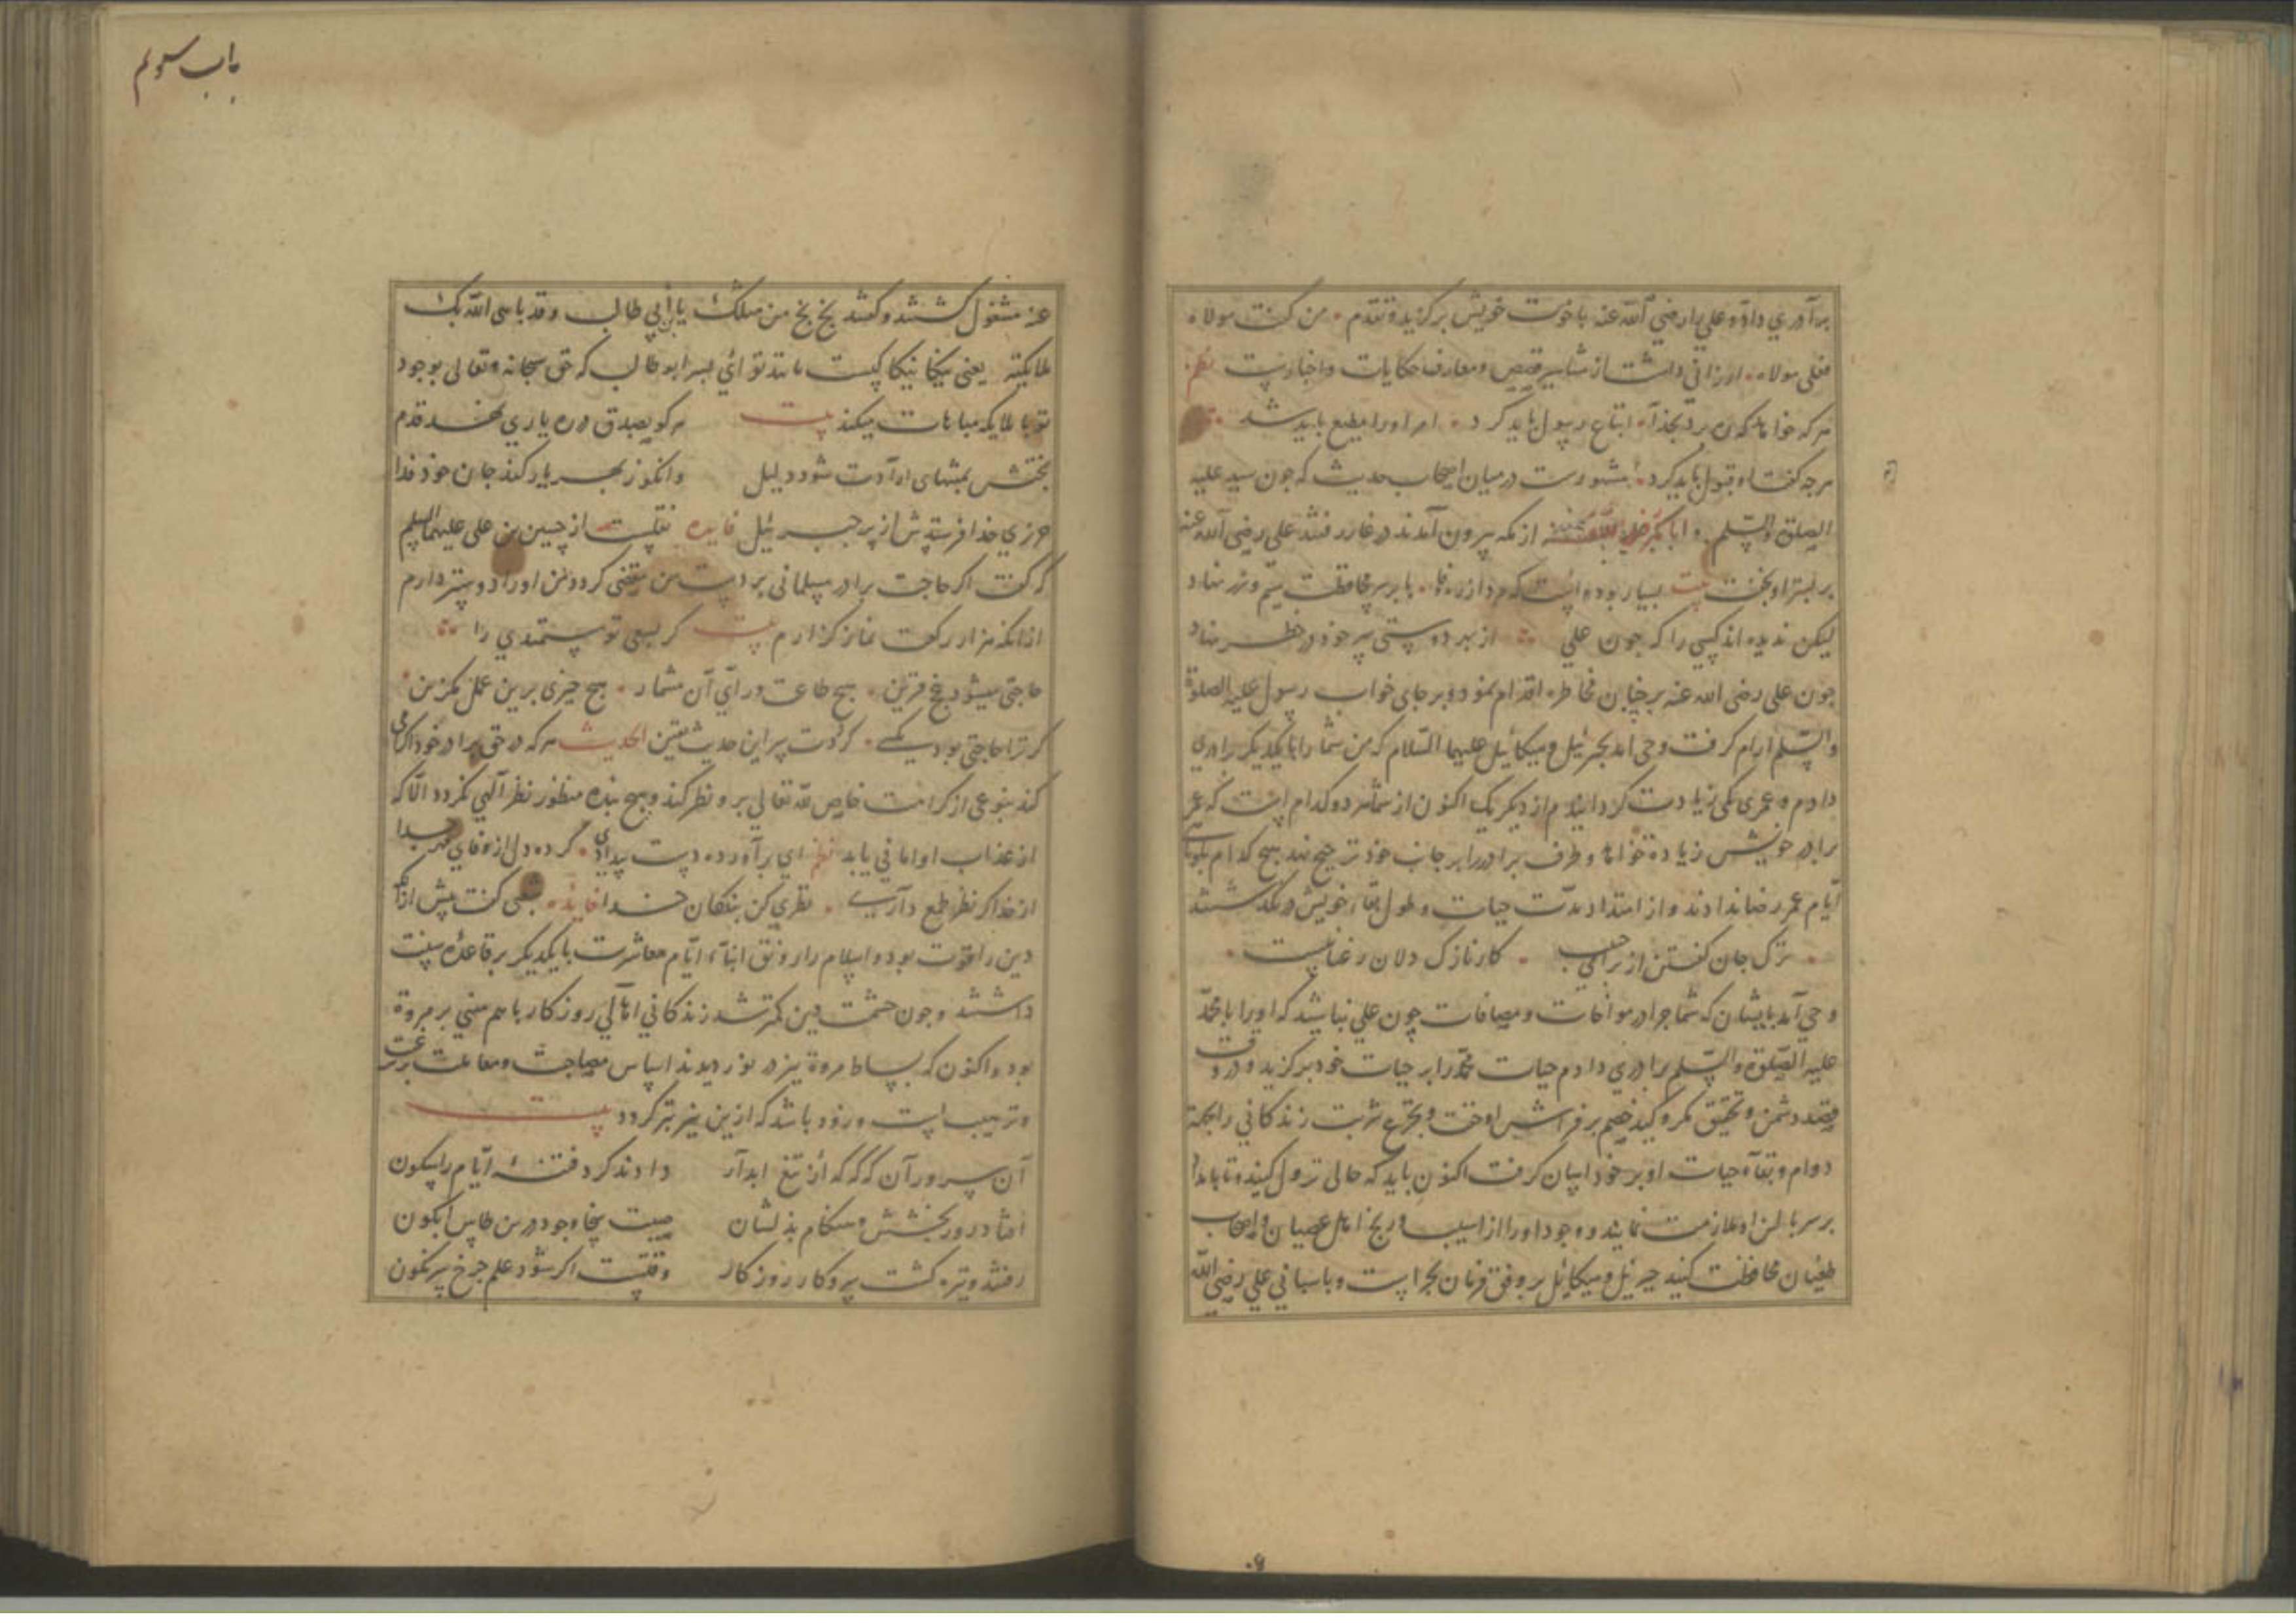 برآوری داد و علی را رضی الله عنه باخوت خویش برکزید و تقدم من کنت مولاه
فعلی مولاه ارزانی داشت از مشاهیر قصص و معارف حکایات و اخبارست نظم
هر که خواهد که ره برد بخدا اتباع رسول باید کرد امر او را مطیع باید شد
هرچه کفت او قبول باید کرد مشهورست در میان اصحاب حدیث که چون سید علیه
الصلوة والسلم و ابا بکر رضی الله عنه از مکه بیرون آمدند در غار رفتند علی رضی الله عنه
بر بستر او بخفت بیت بسیار بوده است که مرد از ره وفا بار بر سر محافظت
لیکن ندیده اند کسی را که چون علی از بهر دوستی سر خود در خطر نهاد
چون علی رضی الله عنه بر چنان مخاطره اقدام نمود و بر جای خواب رسول علیه الصلوة
والسلم ارام کرفت وحی امد بجبرئیل و میکائیل علیهما السلام که من شما را با یکدیکر برادری
دادم و عمر یکی زیادت کردانیدم از دیکر یک اکنون از شما هر دو کدام است که عمر
برادر خویش زیاده خواهد و طرف برادر را بر جانب خود ترجیح نهد هیچ کدام
ایام عمر رضا ندادند و از امتداد مدت حیات و طول بقاء خویش در نکذشتند
ترک جان کفتن از برای حبیب کار نازک دلان رعنا نیست
وحی آمد بایشان که شما چرا در مواخات و مصافات چون علی نباشید که او را با محمد
علیه الصلوة والسلم برادری دادم حیات محمد را بر حیات خود برکزید و در وقت
قصد دشمن و تحقیق مکر و کید خصم بر فراش او خفت و بتجرع شربت زندکانی را بجهة
دوام و بقاء حیات او بر خود اسان کرفت اکنون باید که حالی نزول کنید و تا بامداد
بر سر بالین او ملازمت نمایند و وجود او را از اسیب و رنج اهل عصیان و اصحاب
طغیان محافظت کنید جبرئیل و میکائیل بر وفق فرمان بحراست و پاسبانی علی رضی الله
باب سوم
عنه مشغول کشتند و کفتند بخ بخ من مثلک یا بن أبی طالب وقد باهی الله بک
ملایکته یعنی نیکا نیکا کیست مانند تو ای پسر ابو طالب که حق سبحانه و تعالی بوجود
تو با ملایکه مباهات میکند بیت هر کو بصدق در ره یاری نهد قدم
بختش بمنتهای ارادت شود دلیل وانکو ز بهر یار کند جان خود فدا
خدا فرستدش از پر جبرئیل فایده نقلست از حسین بن علی علیهما السلم
که کفت اکر حاجت برادر مسلمانی بر دست من مقضی کردد من او را دوستر دارم
از انکه هزار رکعت نماز کزارم بیت کر بسعی تو مستمندی را
حاجتی میشود بنجح قرین هیچ طاعت ورای آن مشمار هیچ چیزی برین عمل مکزین
کر ترا حاجتی بود بکسی کردت پس این حدیث یقین الحدیث هر که در حق برادر خود اکرامی
کند بنوعی از کرامت خالص لله تعالی برو نظر کند و هیچ بنده منظور نظر آلهی نکردد الا که
از عذاب او امانی یابد نظم ای برآورده دست بیدادی کرده دل از وفای جدا
از خدا کر نظر طمع داری نظری کن ببندکان خدا فایده شعبی کفت پیش ازانکه
دین را قوت بود و اسلام را رونق ابناء ایام معاشرت با یکدیکر بر قاعده سنت
داشتند و چون حشمت دین کمتر شد زندکانی اهالی روزکار با هم مبنی بر مروة
بود و اکنون که بساط مروة نیز در نوردیدند اساس مصاحبت و معاملت بر رغبت
و ترهیب است و زود باشد که ازین نیز بتر کردد بیت
آن سروران که که از تیغ ابدار دادند کرد فتنهٔ ایام را سکون
رفتند و تیره کشت سر و کار روزکار وقتست اکر شود علم چرخ سرنکون